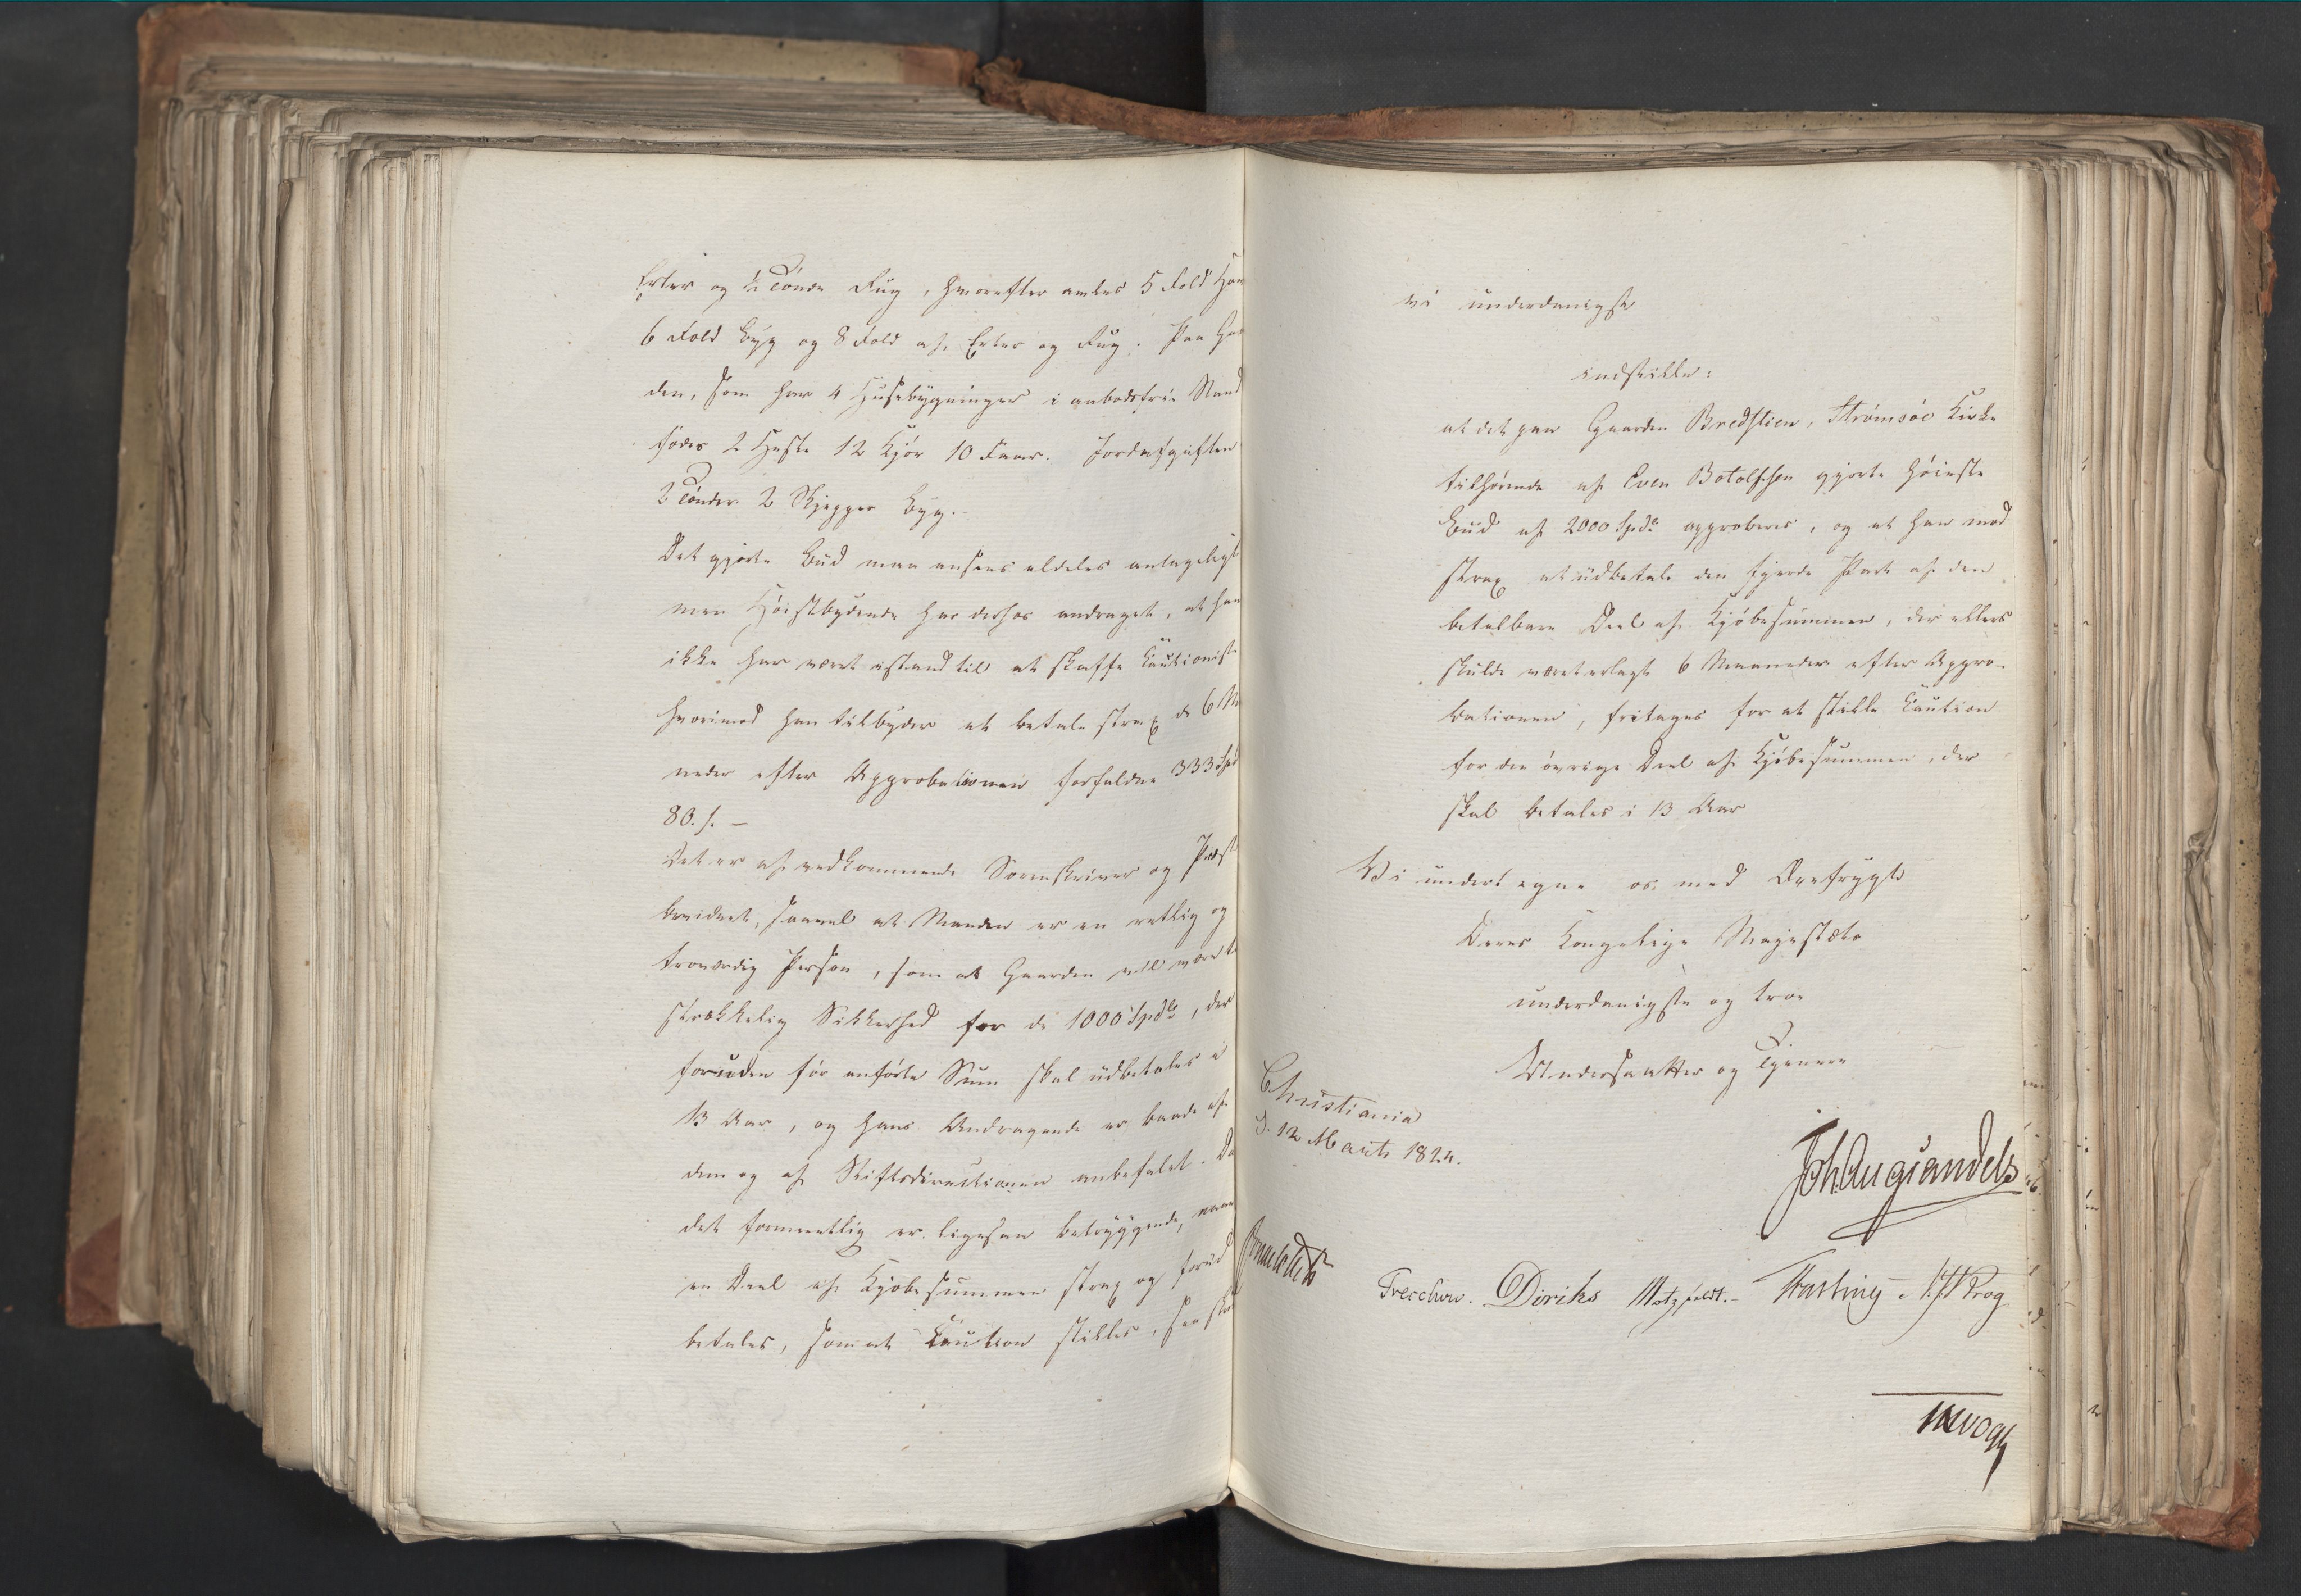 Erter og ½ Tønde Rug, hvorefter avles 5 Fold Hav
6 Fold Byg og 8 Fold af Erter og Rug. Paa Gaar
den, som har 4 Husebygninger i aabodsfrie Stand
fødes 2 Heste 12 Kjør 10 Faar. Jordafgiften
2 Tønder 2 Skjepper Byg.
Det gjorte Bud maa ansees aldeles antageligt
men Høistbydende har derhos andraget, at han
ikke har været istand til at skaffe Cautionist
hvorimod han tilbyder at betale strax de 6 Ma
neder efter Approbationen forfaldne 333 Spd
80. s. –
Det er af vedkommende Sorenskriver og Præst
bevidnet, saavel at Manden er en retlig og
troværdig Person, som at Gaarden vil være til
strækkelig Sikkerhed for de 1000 Spdlr, der
foruden før anførte Sum skal udbetales i
13 Aar, og hans Andragende er baade af
dem og af Stiftsdirectionen anbefalet. Da
det formeentlig er ligesaa betryggende, naar
en Deel af Kjøbesummen strax og forud
betales, som at Caution stilles, saa skul
vi underdanigst
indstille:
at det paa Gaarden Bredstien, Strømsøe Kirke
tilhørende af Even Botolfsen gjorte høieste
Bud af 2000 Spdr approberes, og at han mod
strax at udbetale den fjerde Part af den
betalbare Deel af Kjøbesummen, der ellers
skulde været erlagt 6 Maaneder efter Appro-
bationen, fritages for at stille Caution
for den øvrige Deel af Kjøbesummen, der
skal betales i 13 Aar
Vi undertegne os med Ærefrygt
Deres Kongelige Majestæts
underdanigste og troe
Undersaatter og Tjenere
Christiania
d. 12 Marts 1824.
Joh. Aug Sandels
Sommerhielm Treschow. Diriks Motzfeldt. – Fasting – Krog
Vogt